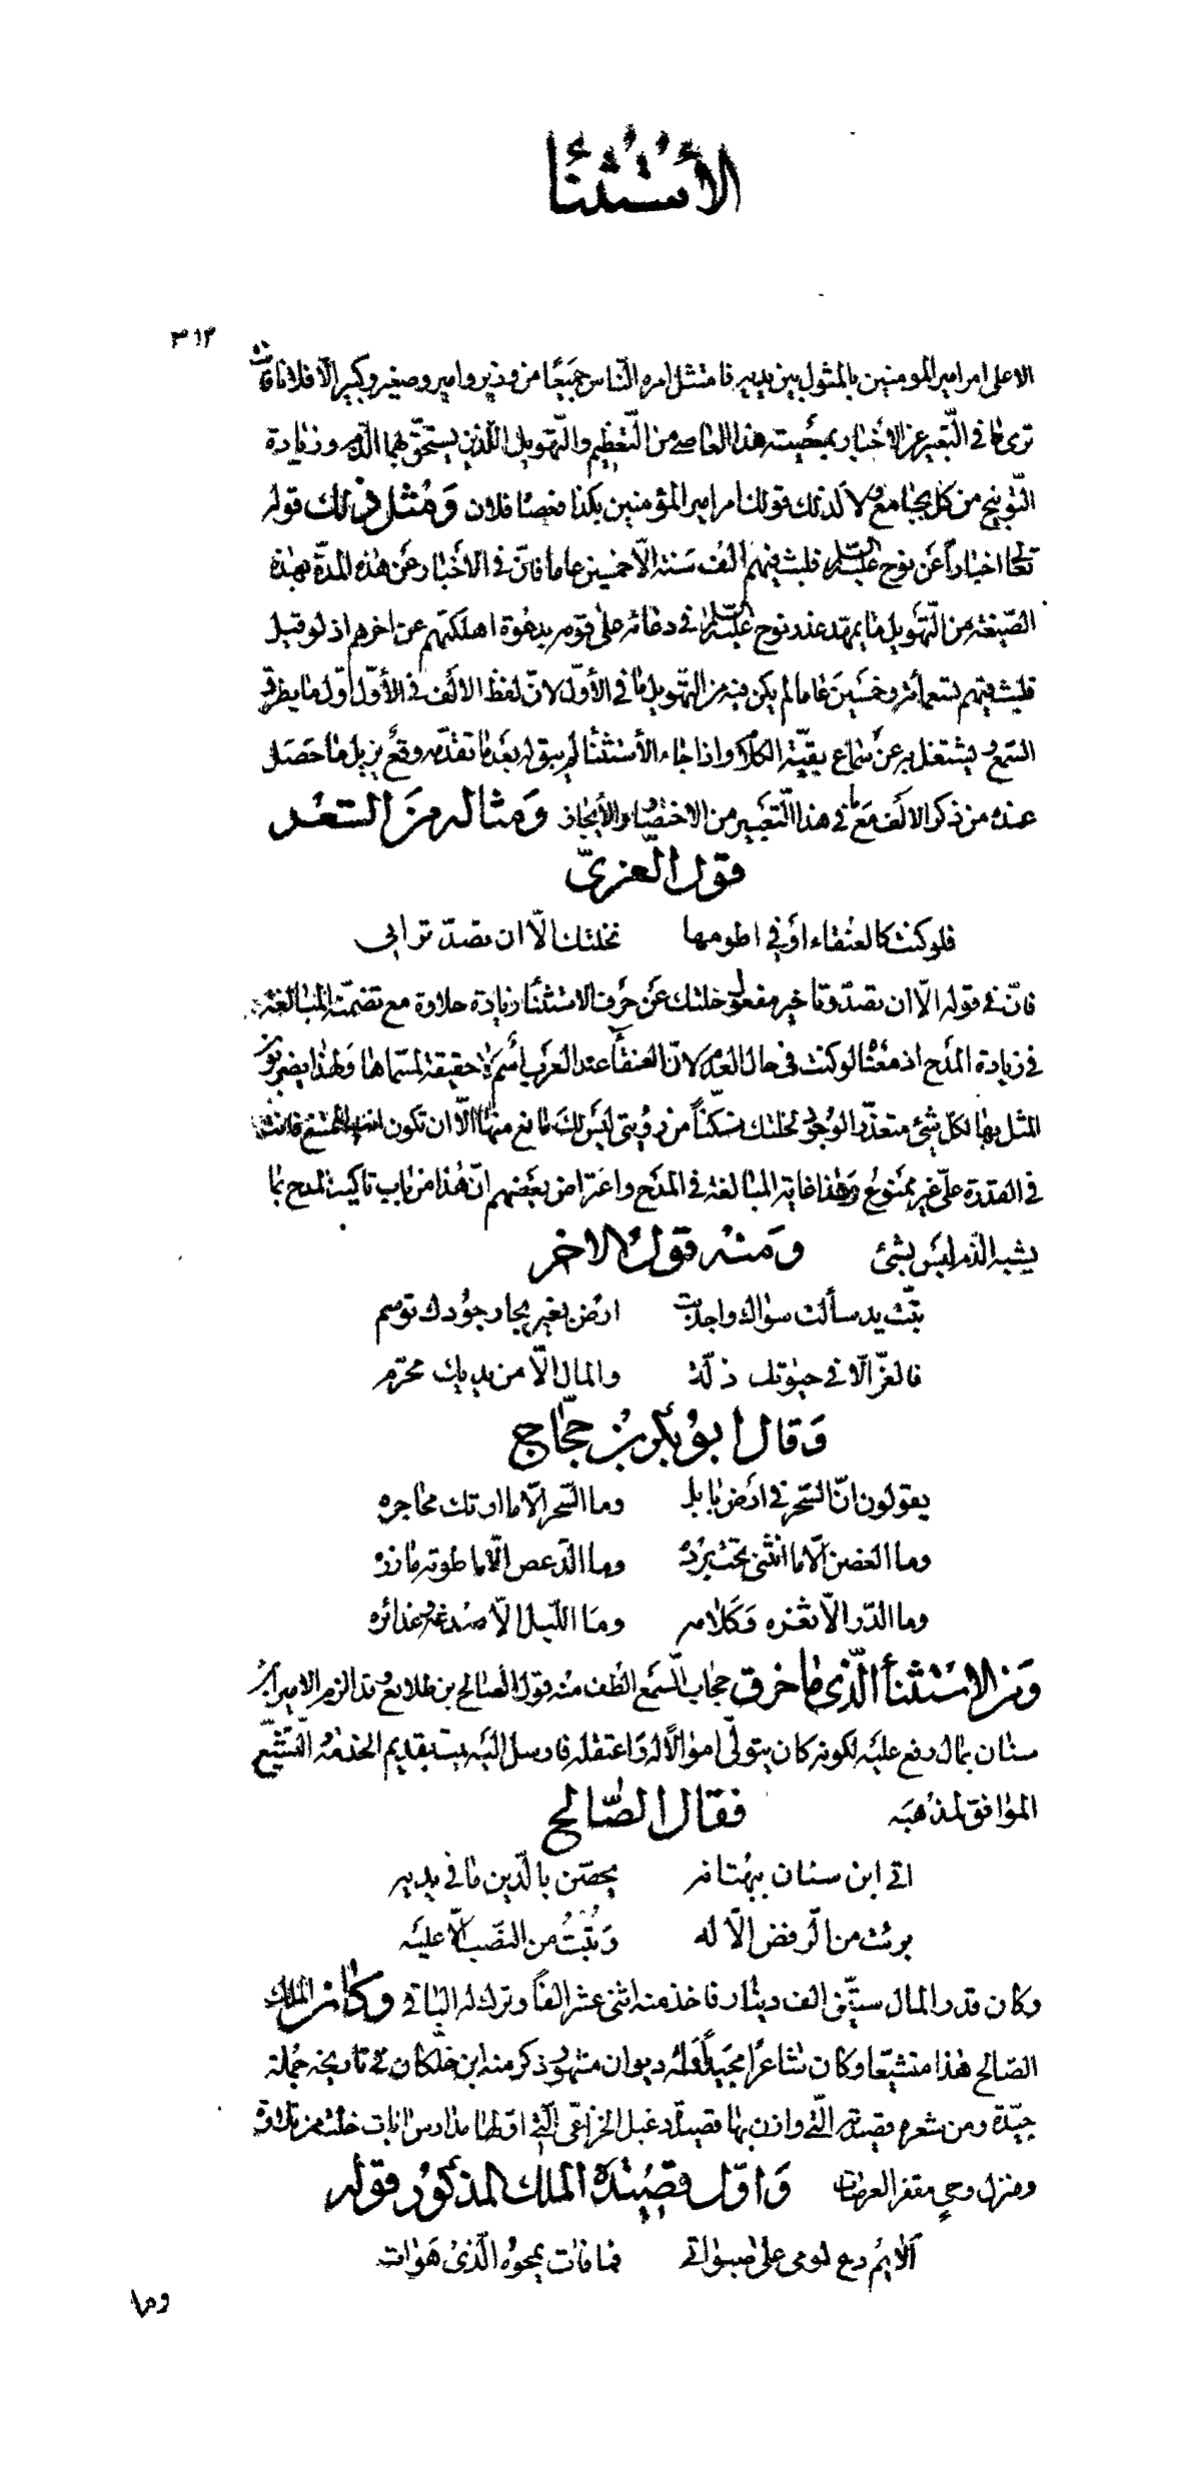 الأستثنا
٣١٢
الا على امر امير المومنين بالمثول بين يديه فامتثل امره النّاس جميعًا من وزير وامير وصغير وكبير الّا فلانا فانت
ترى ما في التّعبير عن الاخبار بمعصيته هذا العاصي من التّعظيم والتّهويل اللّذين يستحقّ بهما الذّم وزيادة
التّوبيخ من كل مجامع ولا كذلك قولك امر امير المؤمنين بكذا فعصا فلان ومثل ذلك قوله
تعالى اخباراً عن نوح عليه السلام فلبث فيهم الف سنة الّا خمسين عاما فانّ في الاخبار عن هذه المدّة بهذه
الصّيغة من التّهويل ما يمهّد عذر نوح عليه السلام في دعائه على قومه بدعوة اهلكتهم عن اخرهم اذ لو قيل
فلبث فيهم تسعمائة وخمسين عاما لم يكن فيه من التّهويل ما في الأوّل لانّ لفظ الالف في الأوّل اوّل ما يطرق
السّمع ويشتغل به عن سماع بقيّة الكلام واذا جاء الأستثنا لم يبق له بعد ما تقدّمه وقع يزيل ما حصل
عنده من ذكر الالف مع ما في هذا التّعبير من الاختصار والأيجاز ومثاله من الشعر
قول النّمريّ
فلو كنت كالعنقاء او في اطومها    لخلتك الّا ان تصدّ تراني
فانّ في قوله الّا ان تصدّ وتاخير مفعول خلتك عن حرف الاستثنا زيادة حلاوة مع تضمّنه المبالغة
في زيادة المدح اذ معناه لو كنت في حال العدم لانّ العنقا عند العرب اسم لا حقيقة لمسمّاها ولهذا يضربون
المثل بها لكلّ شئ متعذّر الوجود لخلتك متمكّناً من رؤيتي ليس لك مانع منها الّا ان تكون انت الممتنع فانت
في القدرة علىّ غير ممنوع وهذا غاية المبالغة في المدح واعتراض بعضهم انّ هذا من باب تاكيد المدح بما
يشبه الذّم ليس بشئ    ومنه قول الاخر
تبّت يد سألت سواك واجدبت    ارض بغير بحار جودك توسم
فالعزّ الّا في حيوتك ذلّة    والمال الّا من يديك محرّم
وقال ابو بكر بن حجّاج
يقولون انّ السّحر في ارض بابل    وما السّحر الّا ما ارتك محاجره
وما الغصن الّا ما انثنى تحت برده    وما الدّعص الّا ما طوته مازره
وما الدّر الّا ثغره وكلامه    وما اللّيل الّا صدغه وغدائره
ومن الاستثنأ الّذي ما خرق حجاب السّمع الطف منه قول الصالح بن طلايع وقد الزم الامير ابن
سنان بمال رفع عليه لكونه كان يتولّى اموالًا له واعتقله فارسل اليه يمتّ بقديم الخدمة والتّشيّع
الموافق لمذهبه    فقال الصّالح
اتى ابن سنان ببهتانه    يحصّن بالدّين ما في يديه
برئت من الرّفض الّا له    وتبت من النّصب الّا عليه
وكان قدر المال ستّين الف دينار فاخذ منه اثنى عشر الفاً وترك له الباقي وكان الملك
الصّالح هذا متشيّعا وكان شاعرًا مجيداً وله ديوان مشهور ذكر منه ابن خلّكان في تاريخه جملة
جيّدة ومن شعره قصيدته الّتي وازن بها قصيدة دعبل الخزاعي الّتي اوّلها مدارس ايات خلت من تلاوة
ومنزل وحي مقفر العرصات    وأوّل قصيدة الملك المذكور قوله
ألائم دع لومى على صبواتي    فما فات يمحوه الّذي هو ات
وما